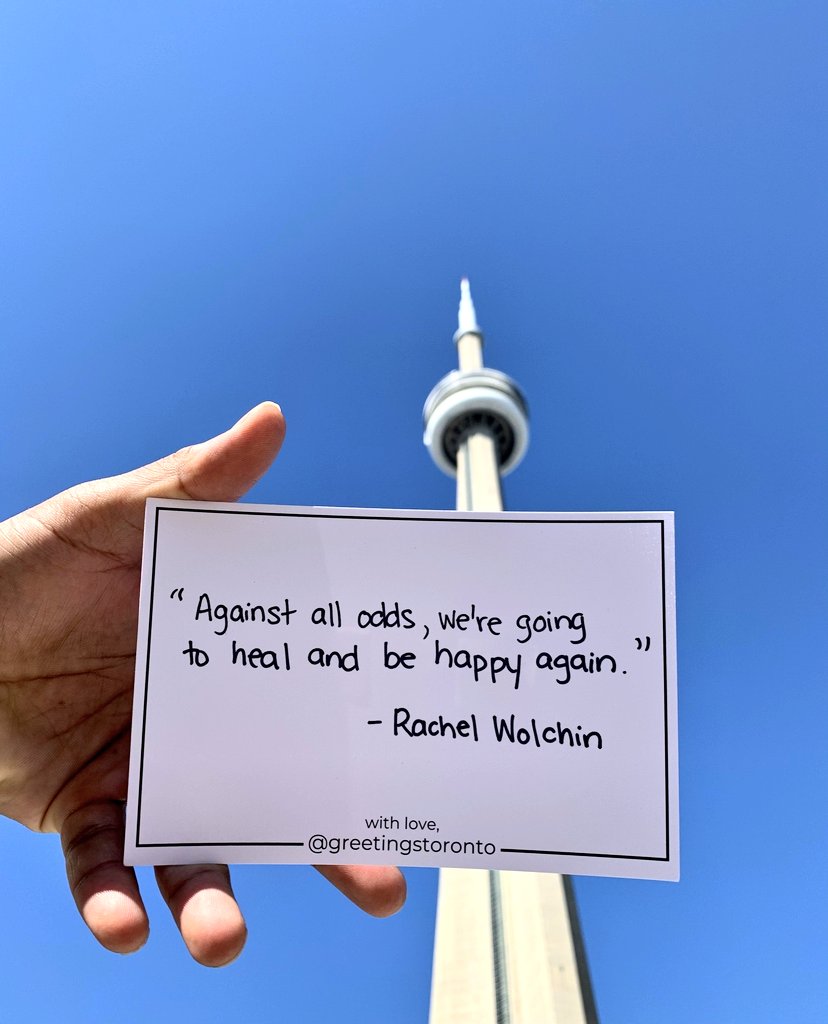 “Against all odds, we're going
to heal and be happy again.”
- Rachel Wolchin
with love,
@greetingstoronto